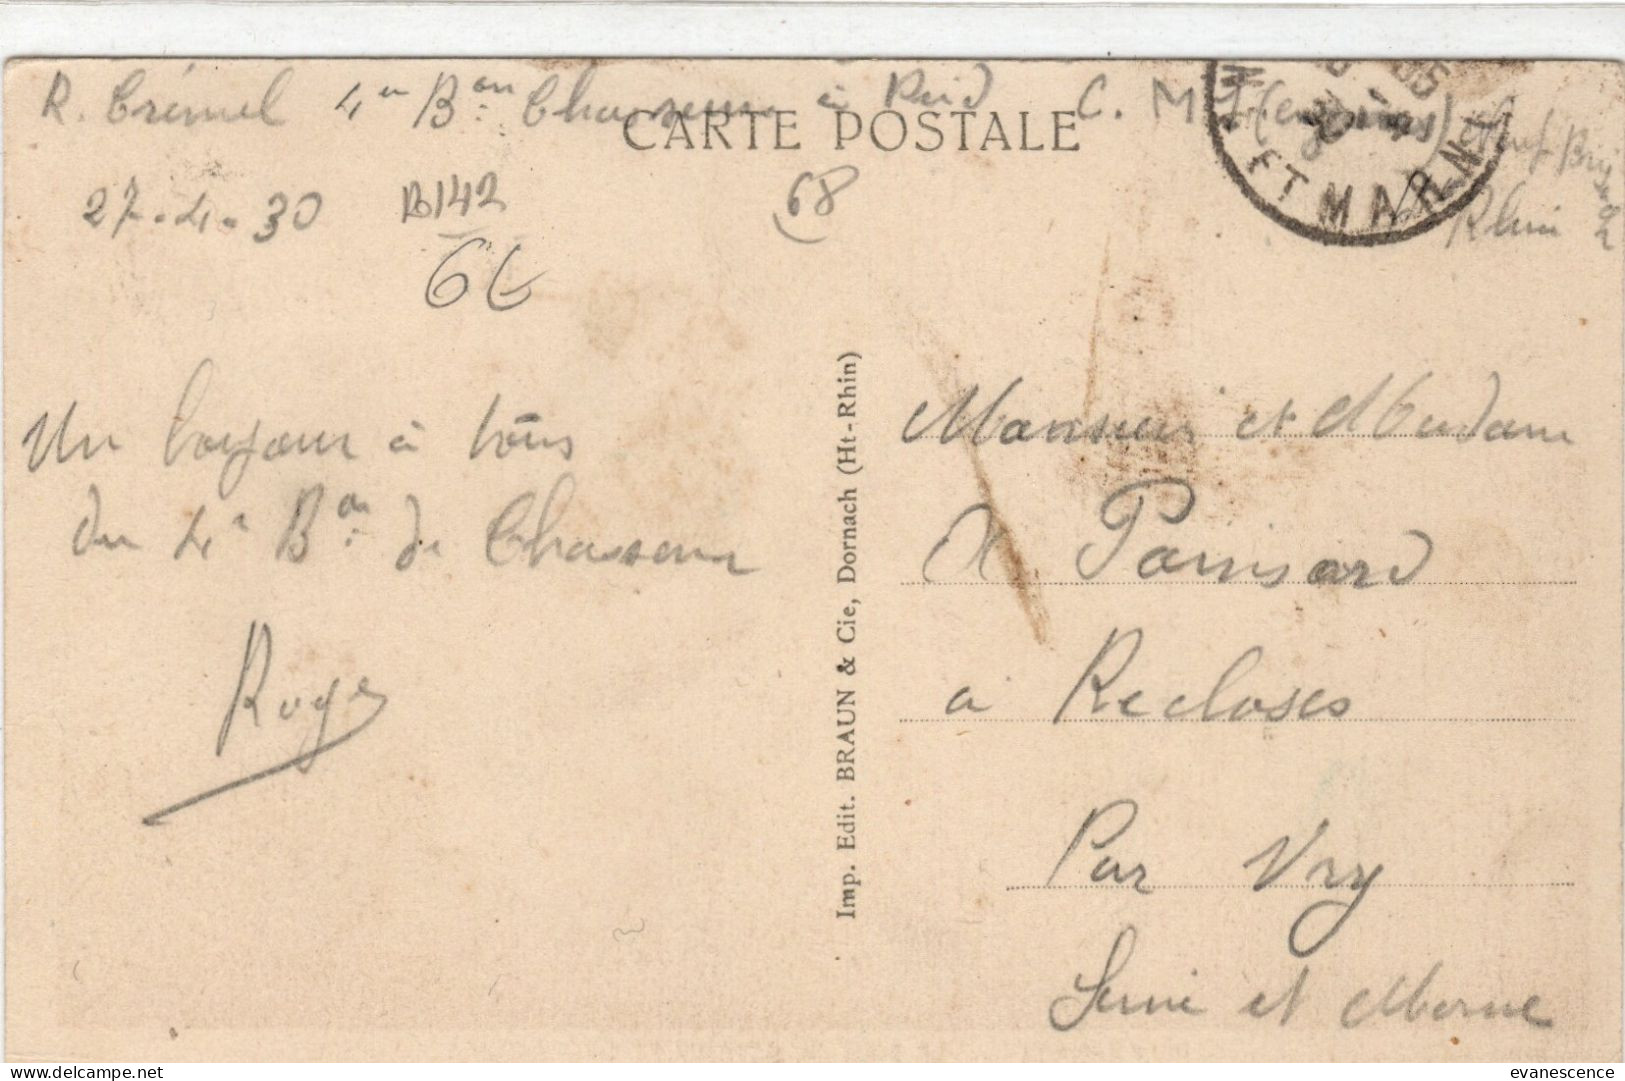 R. Crémel 4e Bon Chasseurs à Pied C. M. 1 (engins) Neuf Brisach
CARTE POSTALE
ET MARN
Rhin
27-4-30 B142 68
6€
Un bonjour à tous
du 4e Bon de Chasseurs
Roger
Imp. Edit. BRAUN & Cie, Dornach (Ht-Rhin)
Monsieur et Madame
A Parisard
à Recloses
Par Ury
Seine et Marne
evanescence